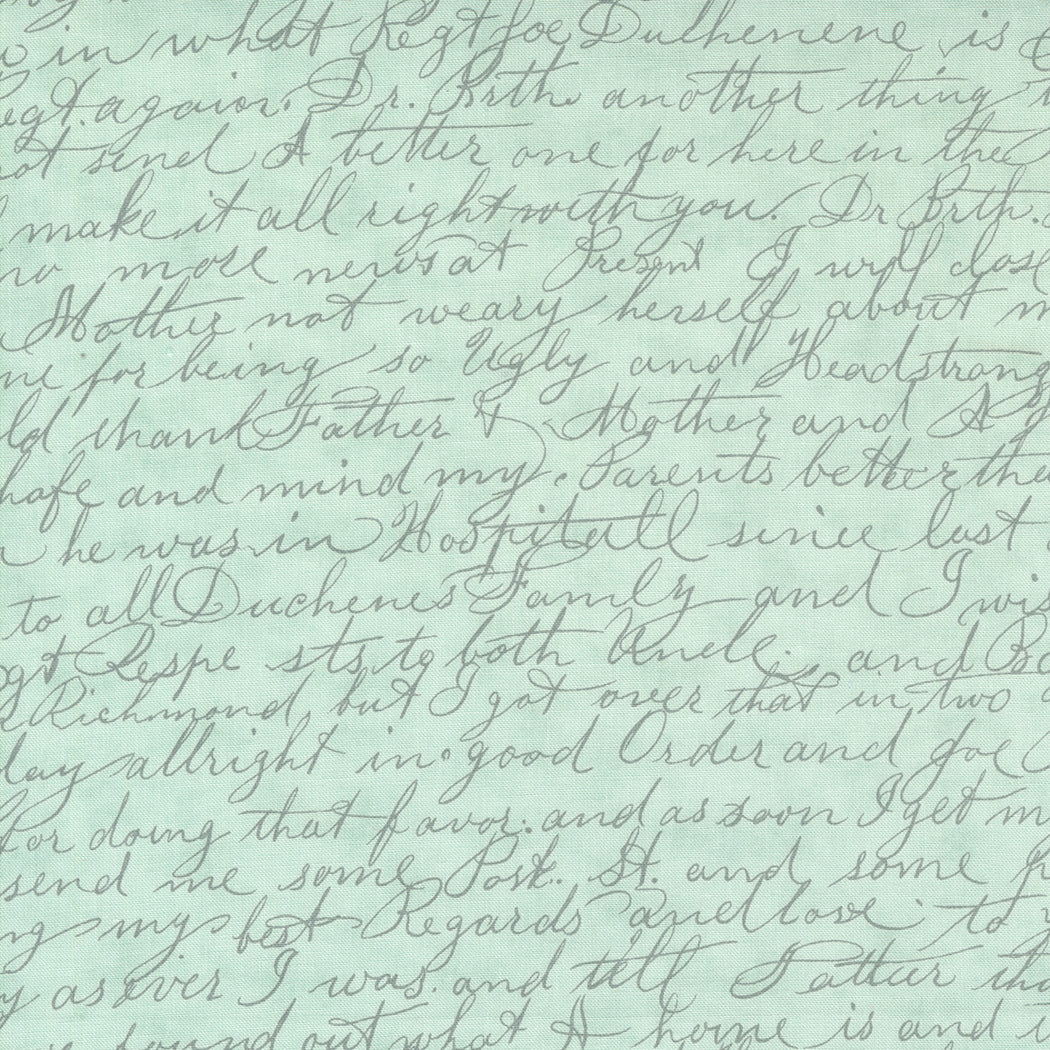 in what Regt Joe Duchenene is
egt. again. Dr. Brth. another thing
not send A better one for here in the
make it all right with you. Dr Brth.
no more news at Present I will close
Mother not weary herself about m
me for being so Ugly and Headstrong
ld thank Father & Mother and
hafe and mind my. Parents better the
he was in Hospitall since last
to all Duchenes Family and I wis
Respe sts, to both Uncle. and
Richmond, but I got over that in two
day allright in good Order and Joe
For doing that favor. and as soon I get m
send me some Post. St. and some
ng my best Regards and love to
y as ever I was. and tell Father tha
found out what A home is and